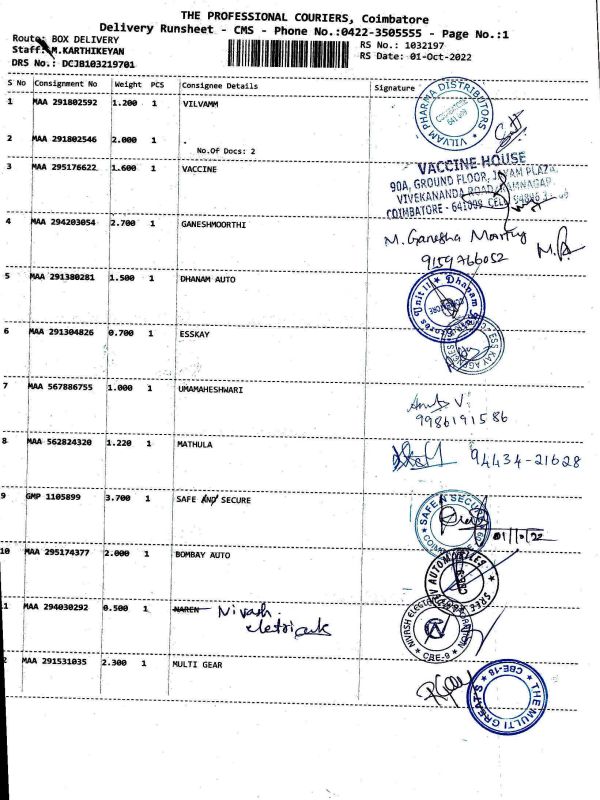 THE PROFESSIONAL COURIERS, Coimbatore
Delivery Runsheet - CMS - Phone No.:0422-3505555 - Page No.:1
Route: BOX DELIVERY
Staff: M.KARTHIKEYAN
DRS No.: DCJB103219701
RS No.: 1032197
RS Date: 01-Oct-2022
S No Consignment No Weight PCS Consignee Details Signature
1 MAA 291802592 1.200 1 VILVAMM
VILVAM PHARMA DISTRIBUTORS
COIMBATORE
2 MAA 291802546 2.000 1 .
No.Of Docs: 2
3 MAA 295176622 1.600 1 VACCINE
VACCINE HOUSE
90A, GROUND FLOOR, JEYAM PLAZA,
VIVEKANANDA ROAD, RAMNAGAR,
COIMBATORE - 641009 CELL
4 MAA 294203054 2.700 1 GANESHMOORTHI
M. Ganesha Moorthy
9159766052
5 MAA 291380281 1.500 1 DHANAM AUTO
Dhanam Stores Unit II
6 MAA 291304826 0.700 1 ESSKAY
ESS KAY AGENCIES
7 MAA 567886755 1.000 1 UMAMAHESHWARI
V.
9986191586
8 MAA 562824320 1.220 1 MATHULA
94434-21628
9 GMP 1105899 3.700 1 SAFE AND SECURE
SAFE N SECURE
01/10/22
10 MAA 295174377 2.000 1 BOMBAY AUTO
SREE AUTOMOBILES
11 MAA 294030292 0.500 1 NAREN Nivash.
eletricals
NIVASH ELECTRICAL CORPORATION
CBE-9
12 MAA 291531035 2.300 1 MULTI GEAR
THE MULTI GREAT'S
CBE-18